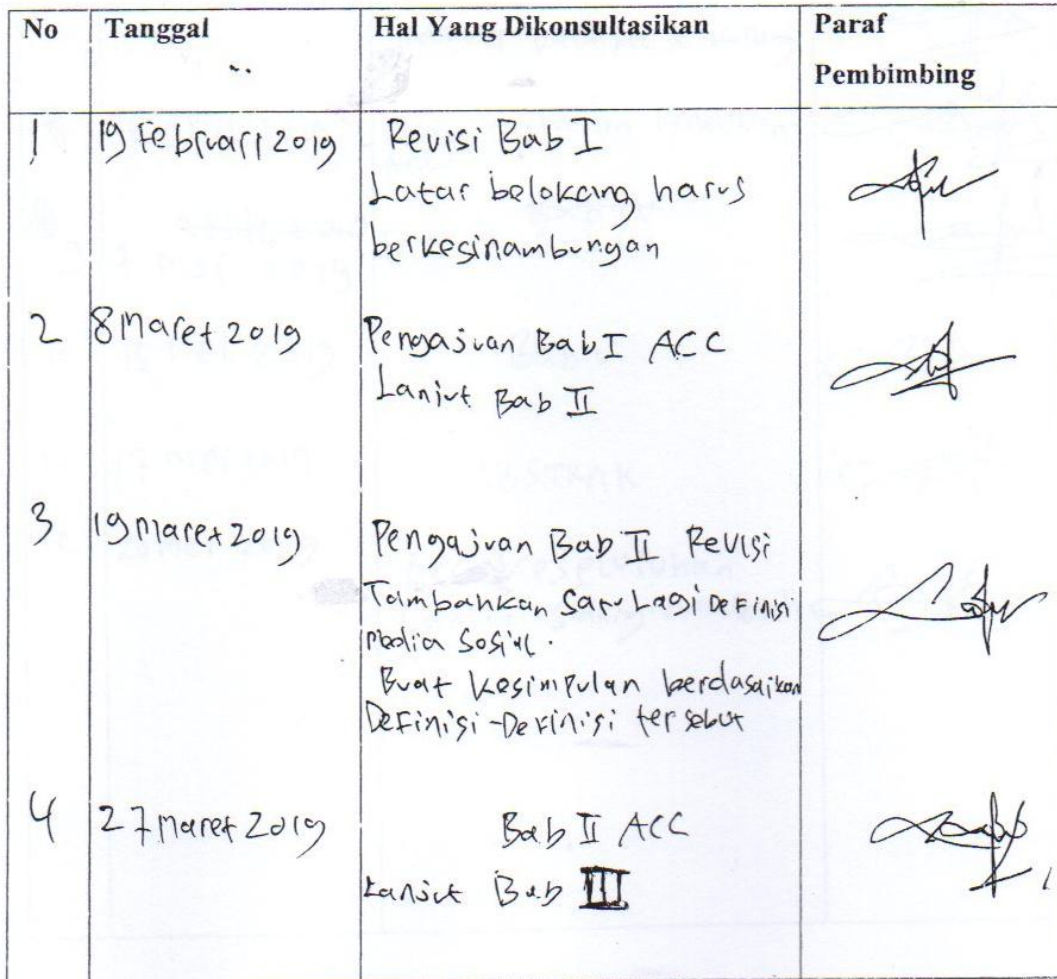 No Tanggal Hal Yang Dikonsultasikan Paraf
Pembimbing
1 19 Februari 2019 Revisi Bab I
Latar belakang harus
berkesinambungan
2 8 Maret 2019 Pengajuan Bab I ACC
Lanjut Bab II
3 19 Maret 2019 Pengajuan Bab II Revisi
Tambahkan Satu Lagi Definisi
Media Sosial.
Buat Kesimpulan berdasarkan
Definisi-Definisi tersebut
4 27 Maret 2019 Bab II ACC
Lanjut Bab III